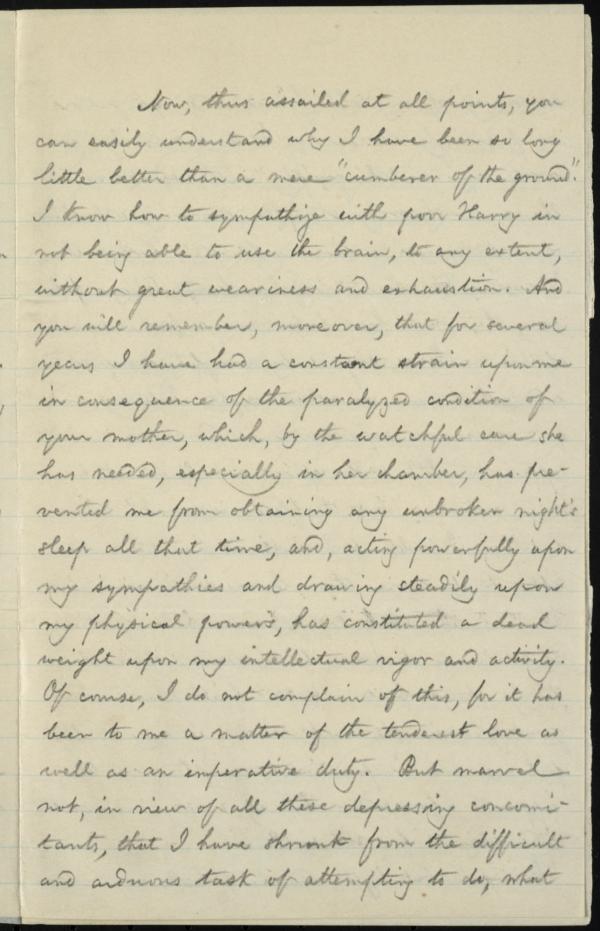 Now, thus assailed at all points, you
can easily understand why I have been so long
little better than a mere "cumberer of the ground."
I know how to sympathize with poor Harry in
not being able to use the brain, to any extent,
without great weariness and exhaustion. And
you will remember, moreover, that for several
years I have had a constant strain upon me
in consequence of the paralyzed condition of
your mother, which, by the watchful care she
has needed, especially in her chamber, has pre-
vented me from obtaining any unbroken night's
sleep all that time, and, acting powerfully upon
my sympathies and drawing steadily upon
my physical powers, has constituted a dead
weight upon my intellectual vigor and activity.
Of course, I do not complain of this, for it has
been to me a matter of the tenderest love as
well as an imperative duty. But marvel
not, in view of all these depressing concomi-
tants, that I have shrunk from the difficult
and arduous task of attempting to do, what